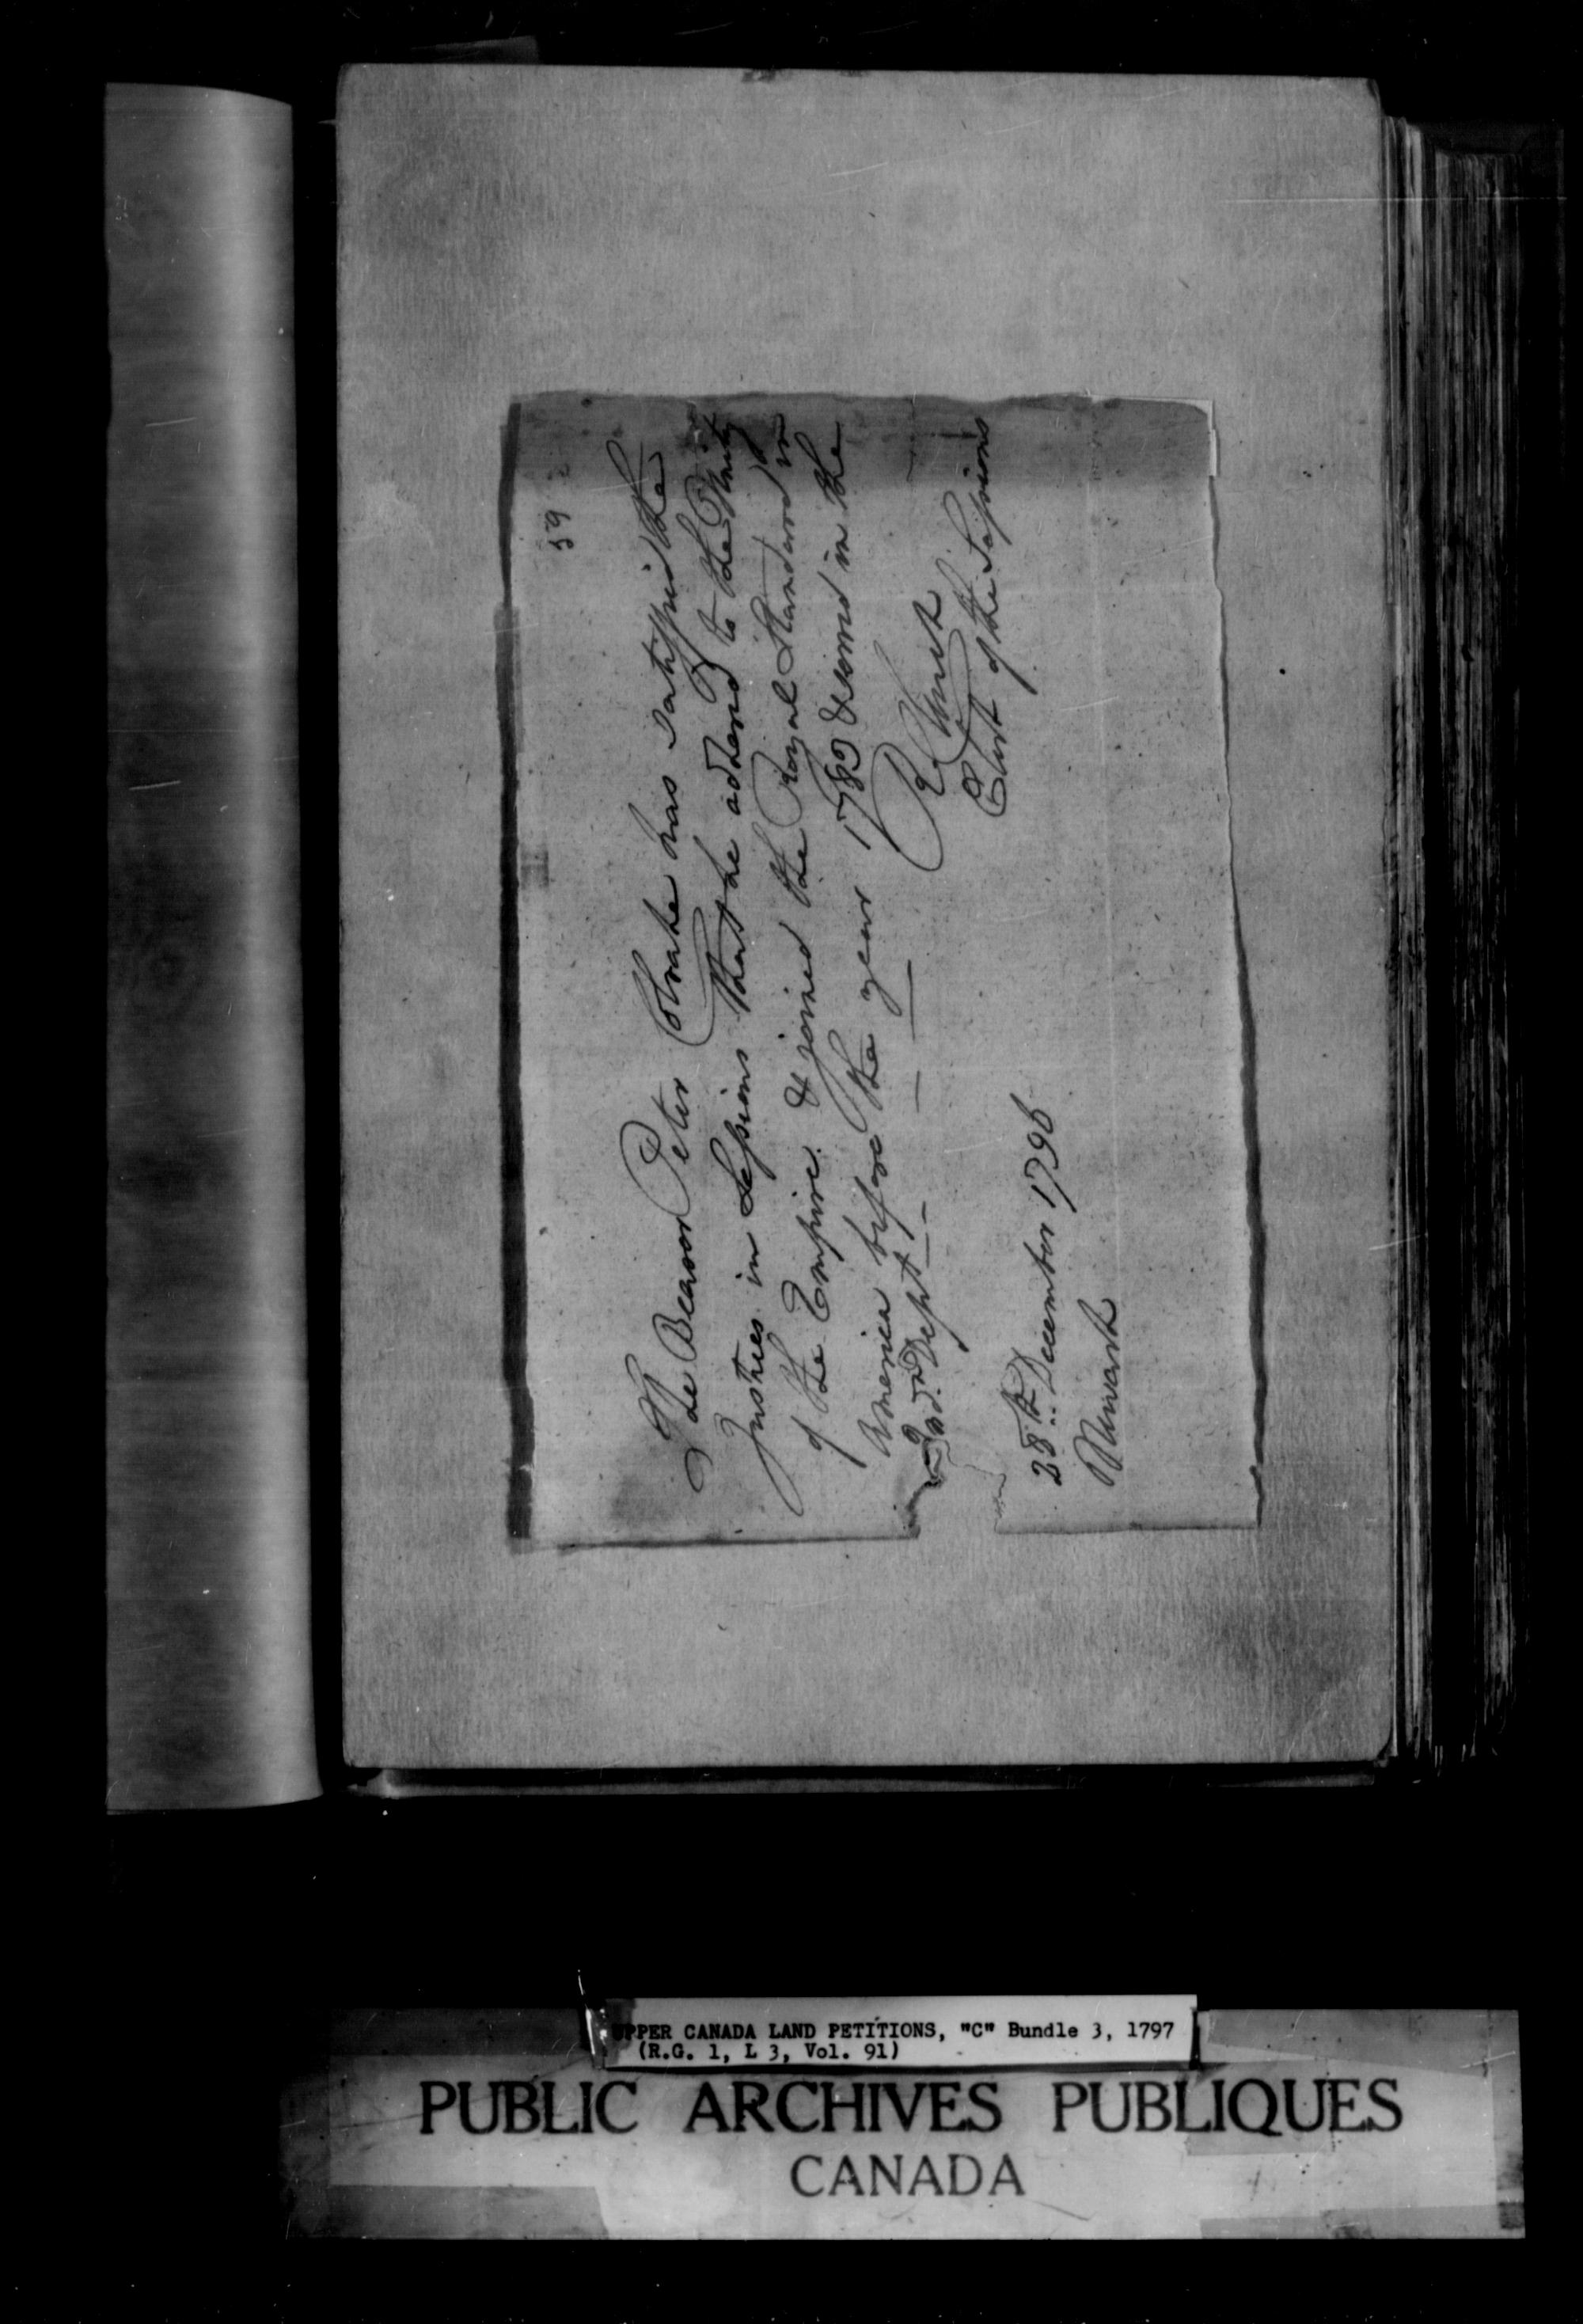 59
The Bearer Peter has satisfied the
Justices in Sessions that he adhered to the Unity
of the Empire & joined the Royal Standard in
America before the year 1783 & served in the
Ind.n Dept
Clerk of the Sessions
28th December 1796
Newark
UPPER CANADA LAND PETITIONS, "C" Bundle 3, 1797
(R.G. 1, L 3, Vol. 91)
PUBLIC ARCHIVES PUBLIQUES
CANADA